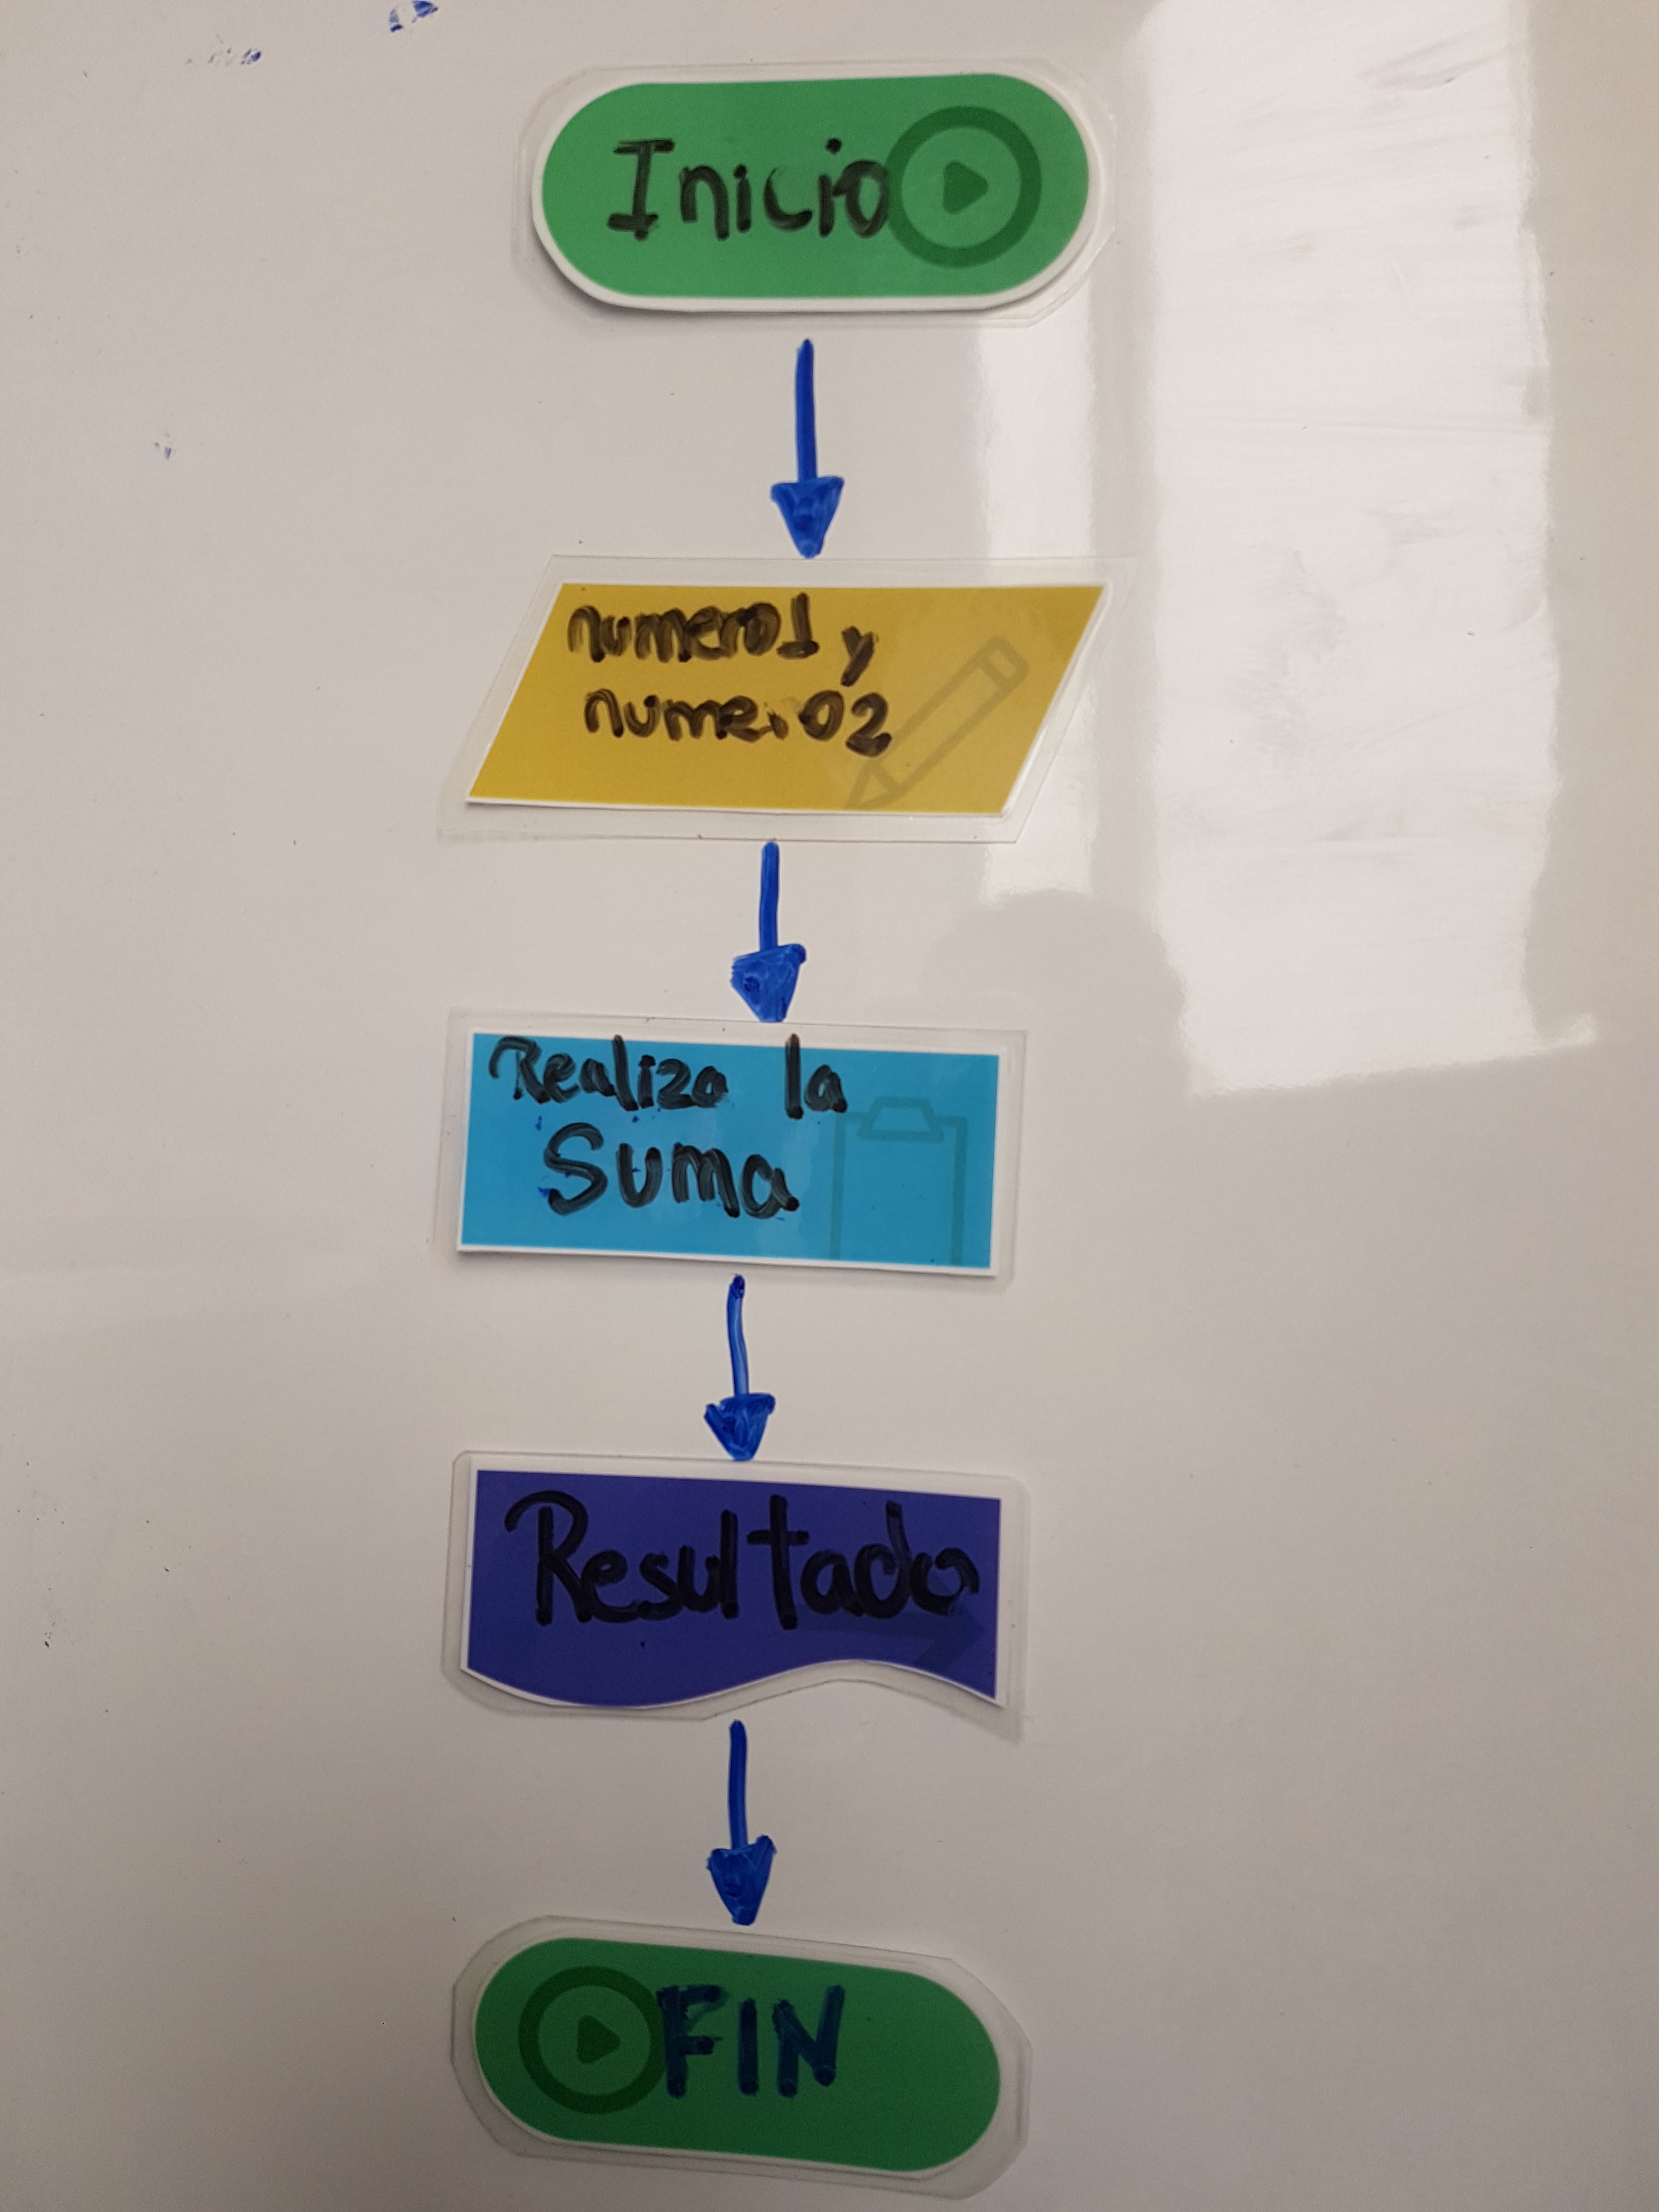 Inicio
numero1 y
numero2
Realiza la
Suma
Resultado
FIN